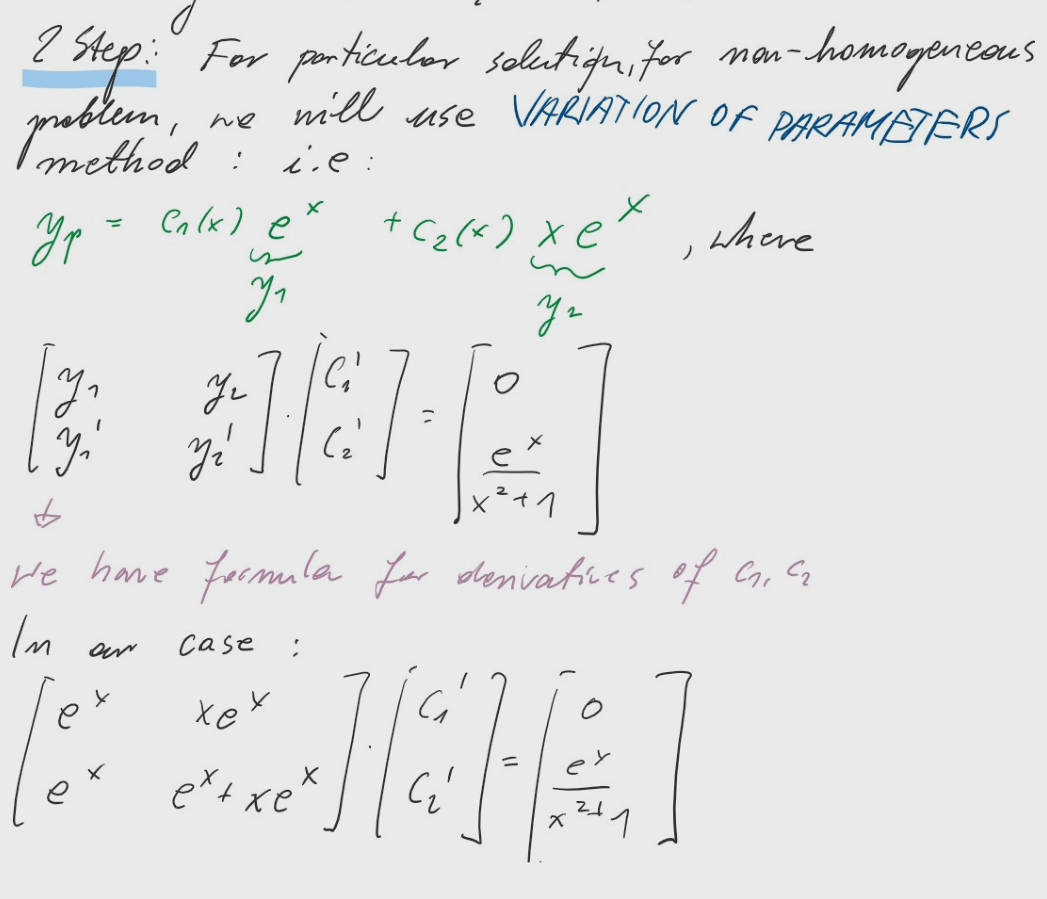 2 Step: For particular solution, for non-homogeneous
problem, we will use VARIATION OF PARAMETERS
method : i.e :
y_p = c_1(x) e^x + c_2(x) x e^x , where
y_1 y_2
[ y_1 y_2 ; y_1' y_2' ] · [ C_1' ; C_2' ] = [ 0 ; e^x / (x^2+1) ]
↓
We have formula for derivatives of c_1, c_2
In our case :
[ e^x xe^x ; e^x e^x + xe^x ] · [ C_1' ; C_2' ] = [ 0 ; e^x / (x^2+1) ]